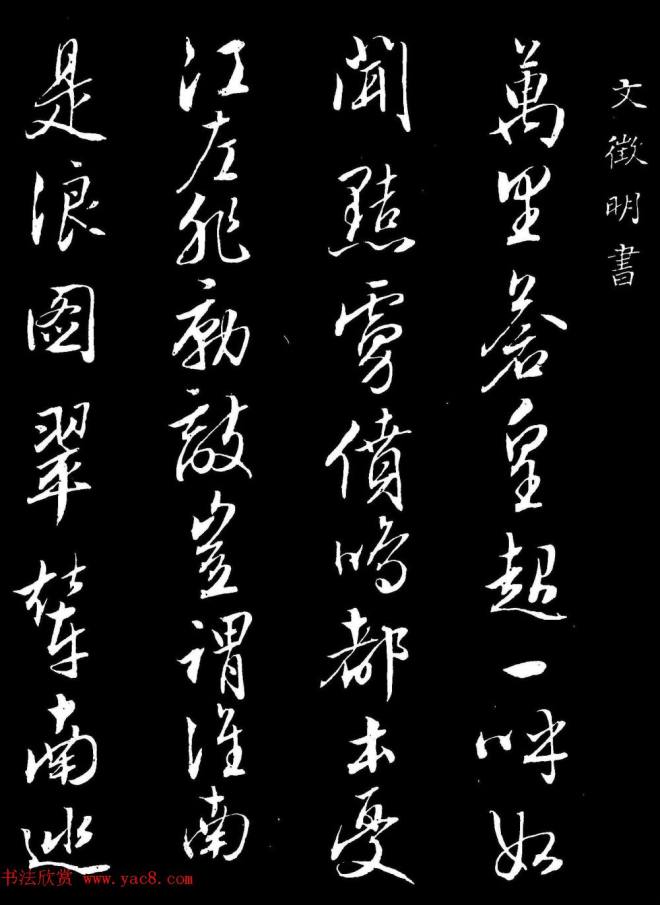 文徵明書
萬里蒼皇起一呼如
聞黠虜僨鳴都本憂
江左非勍敵豈謂淮南
是浪圖翠輦南巡
书法欣赏 www.yac8.com